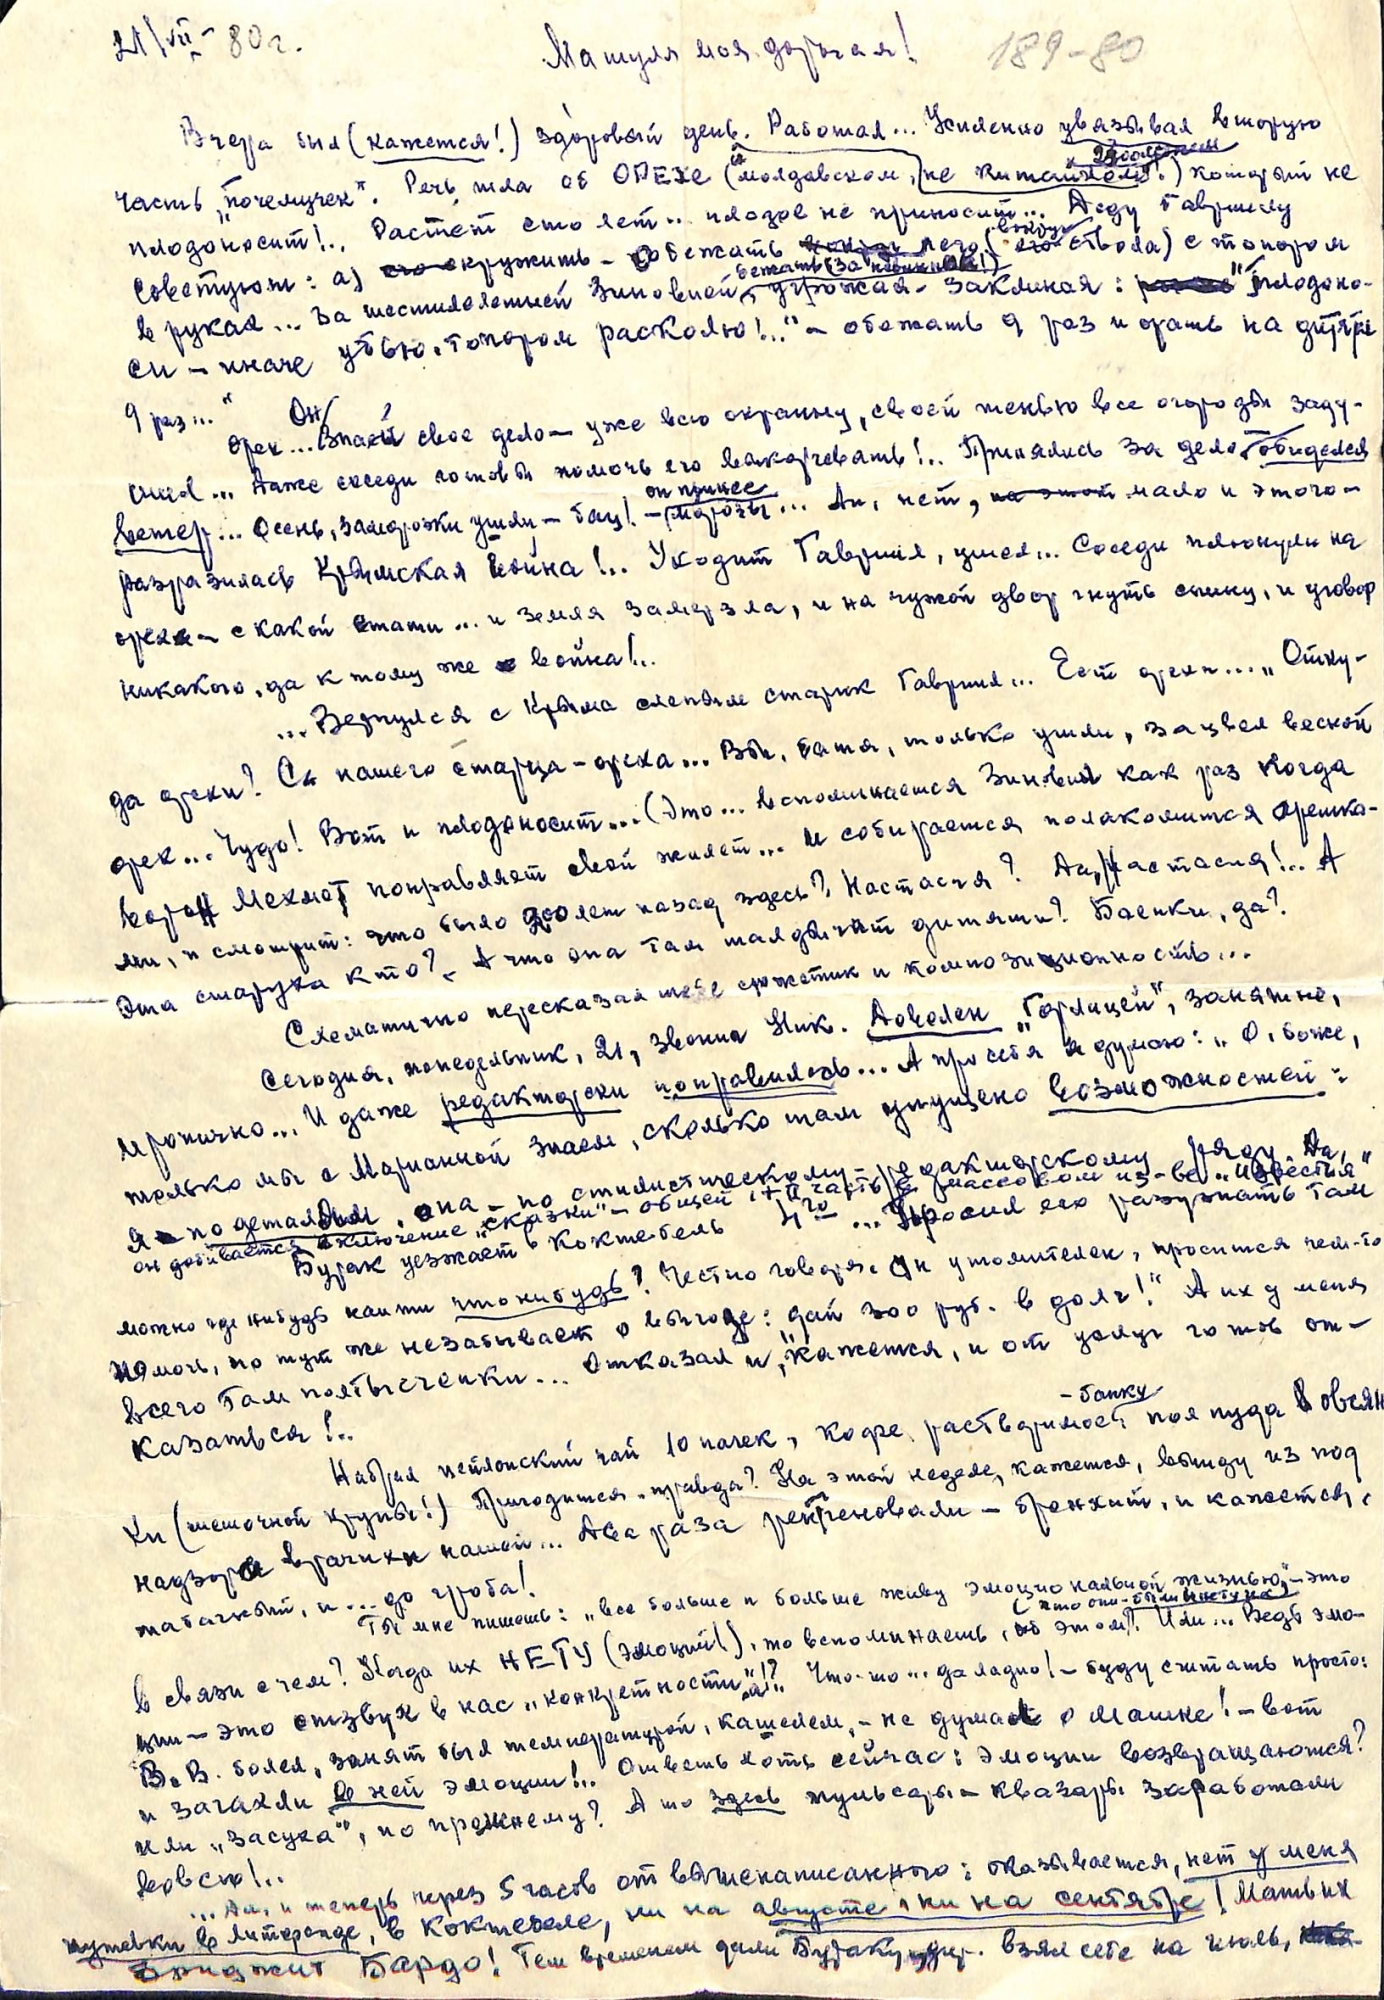 21/VII-80 г. Машуля моя дорогая! 189-80
Вчера был (кажется!) здоровый день. Работал... Усиленно увязывал вторую
часть „почемучек". Речь шла об ОРЕХЕ (молдавском, не китайском!) который не
плодоносит!.. Растёт сто лет... плодов не приносит... Деду Гаврилу
советуют: а) окружить - обежать вокруг него ( ствола) с топором
в руках... За шестилетней Зиновией бежать (за ), угрожая - заклиная: „плодоно-
си - иначе убью, топором расколю!.." - обежать 9 раз и орать на дитятю
9 раз..."
Орех... Он знает свое дело - уже всю окраину, своей тенью все огороды заду-
шил... Даже соседи готовы помочь его выкорчевать!.. Принялись за дело - обиделся
ветер... Осень, заморозки ушли - бац! - он принес морозы... Ан, нет, мало и этого -
разразилась Крымская война!.. Уходит Гаврил, ушел... Соседи плюнули на
орех - с какой стати... и земля замерзла, и на чужой двор гнуть спину, и уговор
никакого, да к тому же война!..
... Вернулся с Крыма слепым старик Гаврил... Ест орехи... „Отку-
да орехи? С нашего старца-ореха... Вы, батя, только ушли, зацвел весной
орех... Чудо! Вот и плодоносит... (Это... вспоминается Зиновия как раз когда
Мехмет поправляет свой жилет... и собирается полакомится орешка-
ми, и смотрит: что было 200 лет назад здесь? Настасия? Да, Настасия!.. А
эта старуха кто? А что она там талдычит дитяти? Баенки, да?
Схематично пересказал тебе сюжетик и композиционность...
Сегодня, понедельник, 21, звонил Ник. Доволен „Горлицей", занятно,
иронично... И даже редакторски понравилось... А про себя я думаю: „О, боже,
только мы с Марианной знаем, сколько там упущено возможностей:
я - по деталям, она - по стилистическому - редакторскому ряду. Да,
он добивается включение „сказки" - общей I + II часть в массовом из-ве „Известия"
Бурак уезжает в Коктебель 4го ... Просил его разузнать там
можно где нибудь найти что нибудь? Честно говоря. Он утомителен, просится чем-то
помочь, но тут же незабывает о выгоде: „дай 300 руб. в долг!" А их у меня
всего там полтысченки... Отказал и, кажется, и от услуг готов от-
казаться!..
Набрал цейлонский чай 10 пачек, кофе растворимого - банку пол пуда овсян
ки (мешочной крупы!) Пригодится, правда? На этой неделе, кажется, выйду из под
надзора врачихи нашей... Два раза рентгеновали - бронхит, и кажется,
табачный, и... до гроба!
Ты мне пишешь: „все больше и больше живу эмоциональной жизнью", - это
в связи с чем? Когда их НЕТУ (эмоций!), то вспоминаешь, об этом (что они - были ) ? Или... Ведь эмо-
ции - это отзвук в нас „конкретности"!? Что-то... да ладно! - буду считать просто:
В.В. болел, занят был температурой, кашелем, - не думал о Машке! - вот
и зачахли в ней эмоции!.. Ответь хоть сейчас: эмоции возвращаются?
Или „засуха", по прежнему? А то здесь пульсары - квазары заработали
вовсю!..
... Да, и теперь через 5 часов от вышенаписанного: оказывается, нет у меня
путевки в Литфонде, в Коктебеле, ни на августе, ни на сентябре! Мать их
Бриджит Бардо! Тем временем дали Бураку, взял себе на июль,